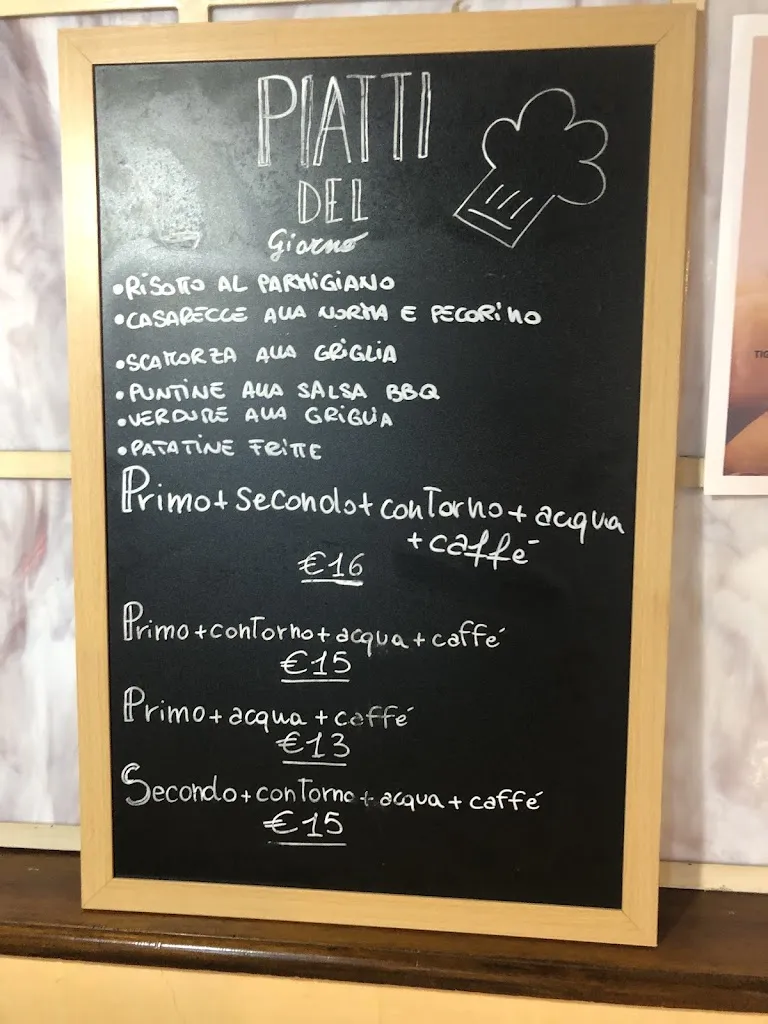 PIATTI
DEL
Giorno
•RISOTTO AL PARMIGIANO
•CASARECCE ALLA NORMA E PECORINO
•SCAMORZA ALLA GRIGLIA
•PUNTINE ALLA SALSA BBQ
•VERDURE ALLA GRIGLIA
•PATATINE FRITTE
Primo+Secondo+contorno+acqua
+caffé
€16
Primo+contorno+acqua+caffé
€15
Primo+acqua+caffé
€13
Secondo+contorno+acqua+caffé
€15
TIG